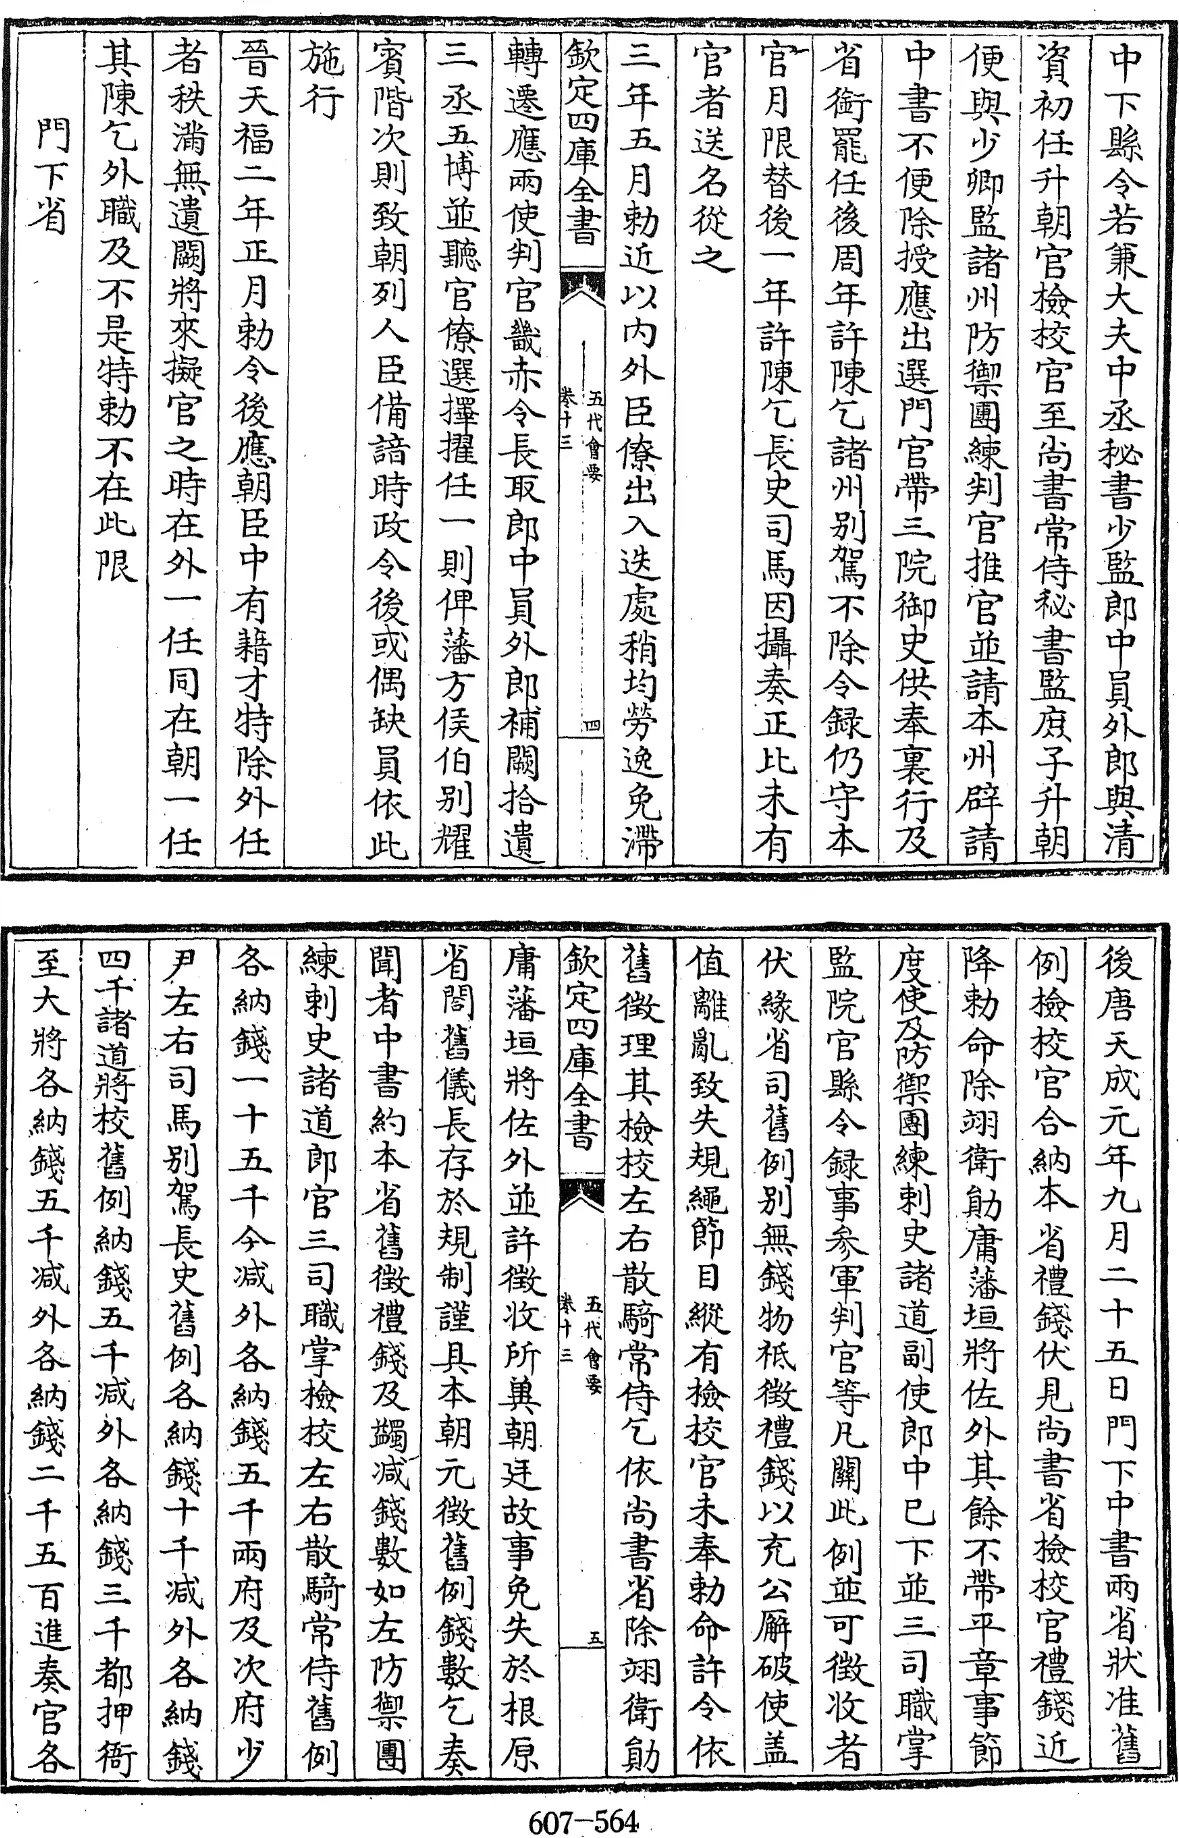 中下縣令若兼大夫中丞秘書少監郎中員外郎與清
資初任升朝官檢校官至尚書常侍秘書監庻子升朝
便與少卿監諸州防禦團練判官推官並請本州辟請
中書不便除授應出選門官帶三院御史供奉裏行及
省銜罷任後周年許陳乞諸州别駕不除令録仍守本
官月限替後一年許陳乞長史司馬因攝奏正比未有
官者送名從之
三年五月勅近以内外臣僚出入迭處稍均勞逸免滯
欽定四庫全書
五代會要
卷十三
四
轉遷應兩使判官畿赤令長取郎中員外郎補闕拾遺
三丞五博並聽官僚選擇擢任一則俾藩方侯伯别耀
賓階次則致朝列人臣備諳時政令後或偶缺員依此
施行
晉天福二年正月勅令後應朝臣中有藉才特除外任
者秩滿無遺闕將來擬官之時在外一任同在朝一任
其陳乞外職及不是特勅不在此限
門下省
後唐天成元年九月二十五日門下中書兩省狀准舊
例檢校官合納本省禮錢伏見尚書省檢校官禮錢近
降勅命除翊衛勛庸藩垣將佐外其餘不帶平章事節
度使及防禦團練刺史諸道副使郎中已下並三司職掌
監院官縣令録事參軍判官等凡關此例並可徴收者
伏緣省司舊例别無錢物祇徴禮錢以充公廨破使盖
值離亂致失規繩節目縱有檢校官未奉勅命許令依
舊徴理其檢校左右散騎常侍乞依尚書省除翊衛勛
欽定四庫全書
五代會要
卷十三
五
庸藩垣將佐外並許徴收所兾朝廷故事免失於根原
省閤舊儀長存於規制謹具本朝元徴舊例錢數乞奏
聞者中書約本省舊徴禮錢及蠲减錢數如左防禦團
練刺史諸道郎官三司職掌檢校左右散騎常侍舊例
各納錢一十五千今减外各納錢五千兩府及次府少
尹左右司馬别駕長史舊例各納錢十千减外各納錢
四千諸道將校舊例納錢五千减外各納錢三千都押衙
至大將各納錢五千减外各納錢二千五百進奏官各
607-564